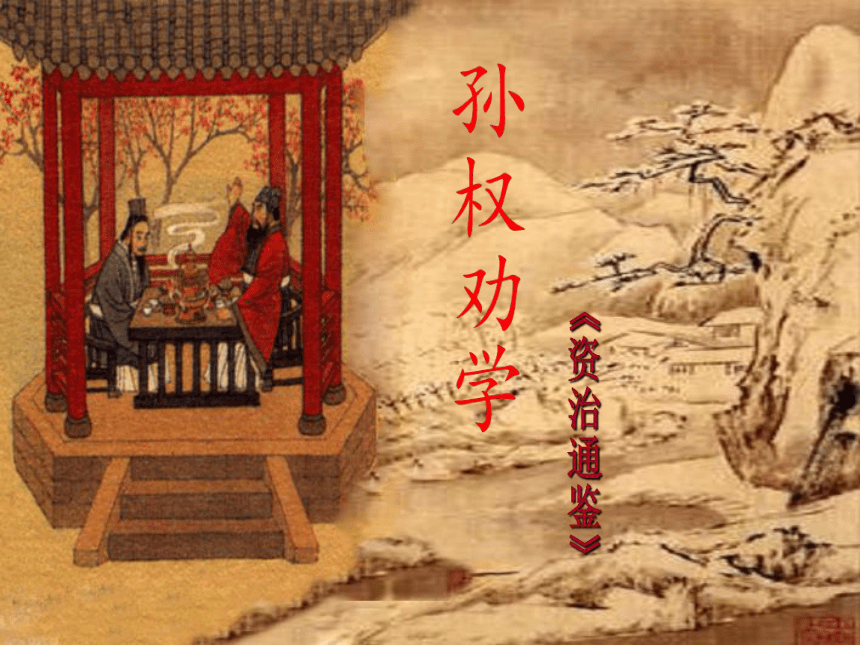 孙权劝学
《资治通鉴》